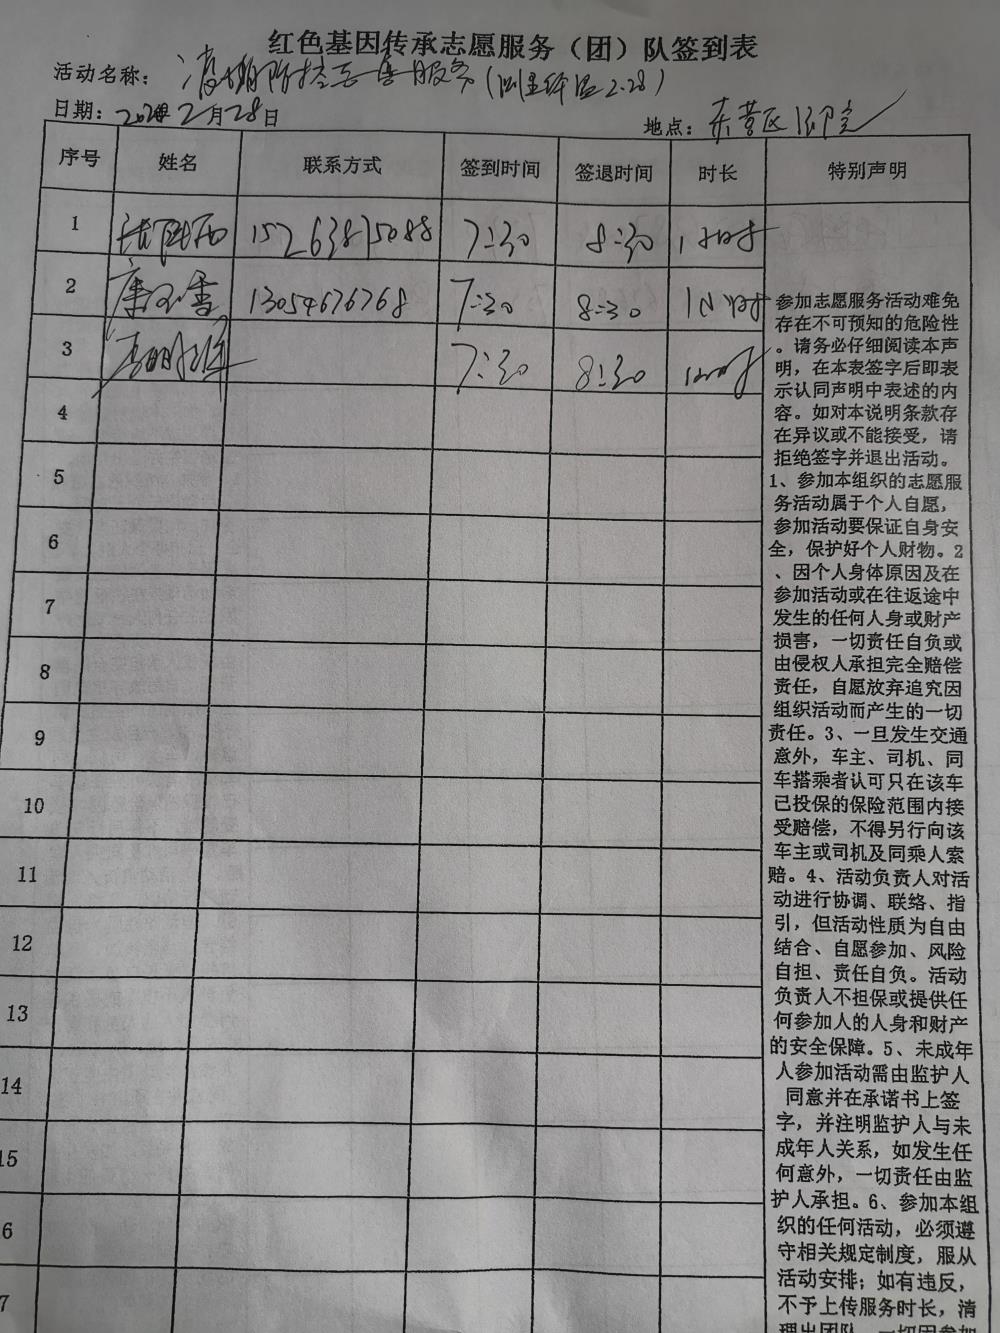 红色基因传承志愿服务（团）队签到表
活动名称： 疫情防控志愿服务（测量体温2.28）
日期： 2月28日
地点： 东营区法院
序号 姓名 联系方式 签到时间 签退时间 时长 特别声明
1 15263875088 7:30 8:30 1小时
2 13054676768 7:30 8:30 1小时
3 7:30 8:30 1小时
4
5
6
7
8
9
10
11
12
13
14
15
6
7
参加志愿服务活动难免
存在不可预知的危险性
。请务必仔细阅读本声
明，在本表签字后即表
示认同声明中表述的内
容。如对本说明条款存
在异议或不能接受，请
拒绝签字并退出活动。
1、参加本组织的志愿服
务活动属于个人自愿，
参加活动要保证自身安
全，保护好个人财物。2
、因个人身体原因及在
参加活动或在往返途中
发生的任何人身或财产
损害，一切责任自负或
由侵权人承担完全赔偿
责任，自愿放弃追究因
组织活动而产生的一切
责任。3、一旦发生交通
意外，车主、司机、同
车搭乘者认可只在该车
已投保的保险范围内接
受赔偿，不得另行向该
车主或司机及同乘人索
赔。4、活动负责人对活
动进行协调、联络、指
引，但活动性质为自由
结合、自愿参加、风险
自担、责任自负。活动
负责人不担保或提供任
何参加人的人身和财产
的安全保障。5、未成年
人参加活动需由监护人
同意并在承诺书上签
字，并注明监护人与未
成年人关系，如发生任
何意外，一切责任由监
护人承担。6、参加本组
织的任何活动，必须遵
守相关规定制度，服从
活动安排；如有违反，
不予上传服务时长，清
理出团队，一切因参加